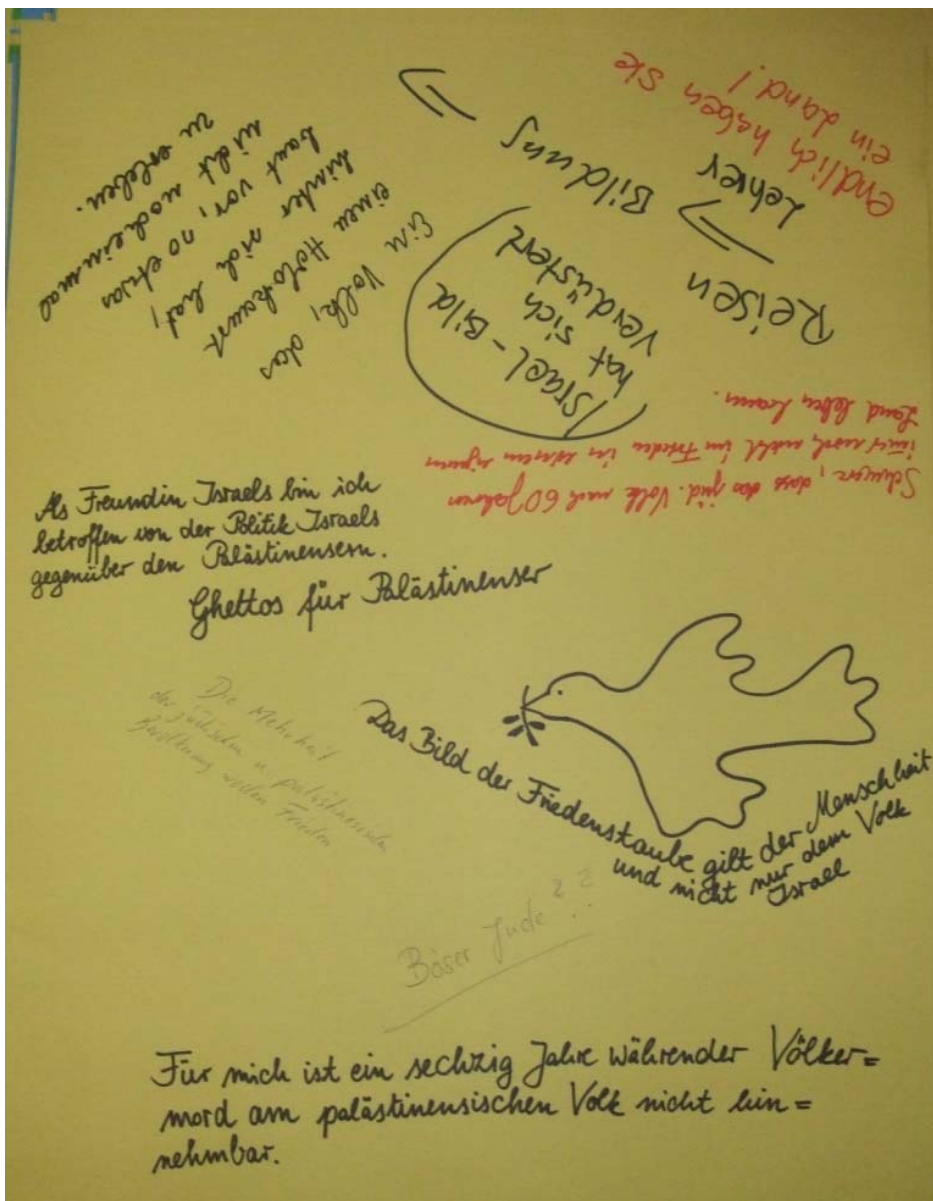 endlich haben sie
ein Land!
Lehrer
Bildung
Reisen
Israel-Bild
hat sich
verdüstert
Ein Volk, das
einen Holokaust
hinter sich hat,
baut vor, so etwas
nicht noch einmal
zu erleben.
Schwere, dass das jüd. Volk nach 60 Jahren
immer noch nicht im Frieden in seinem eigenen
Land leben kann.
Als Freundin Israels bin ich
betroffen von der Politik Israels
gegenüber den Palästinensern.
Ghettos für Palästinenser
Die Mehrheit
der jüdischen u. palästinensischen
Bevölkerung wollen Frieden
Das Bild der Friedenstaube gilt der Menschheit
und nicht nur dem Volk
Israel
Böser Jude??
Für mich ist ein sechzig Jahre währender Völker=
mord am palästinensischen Volk nicht hin=
nehmbar.